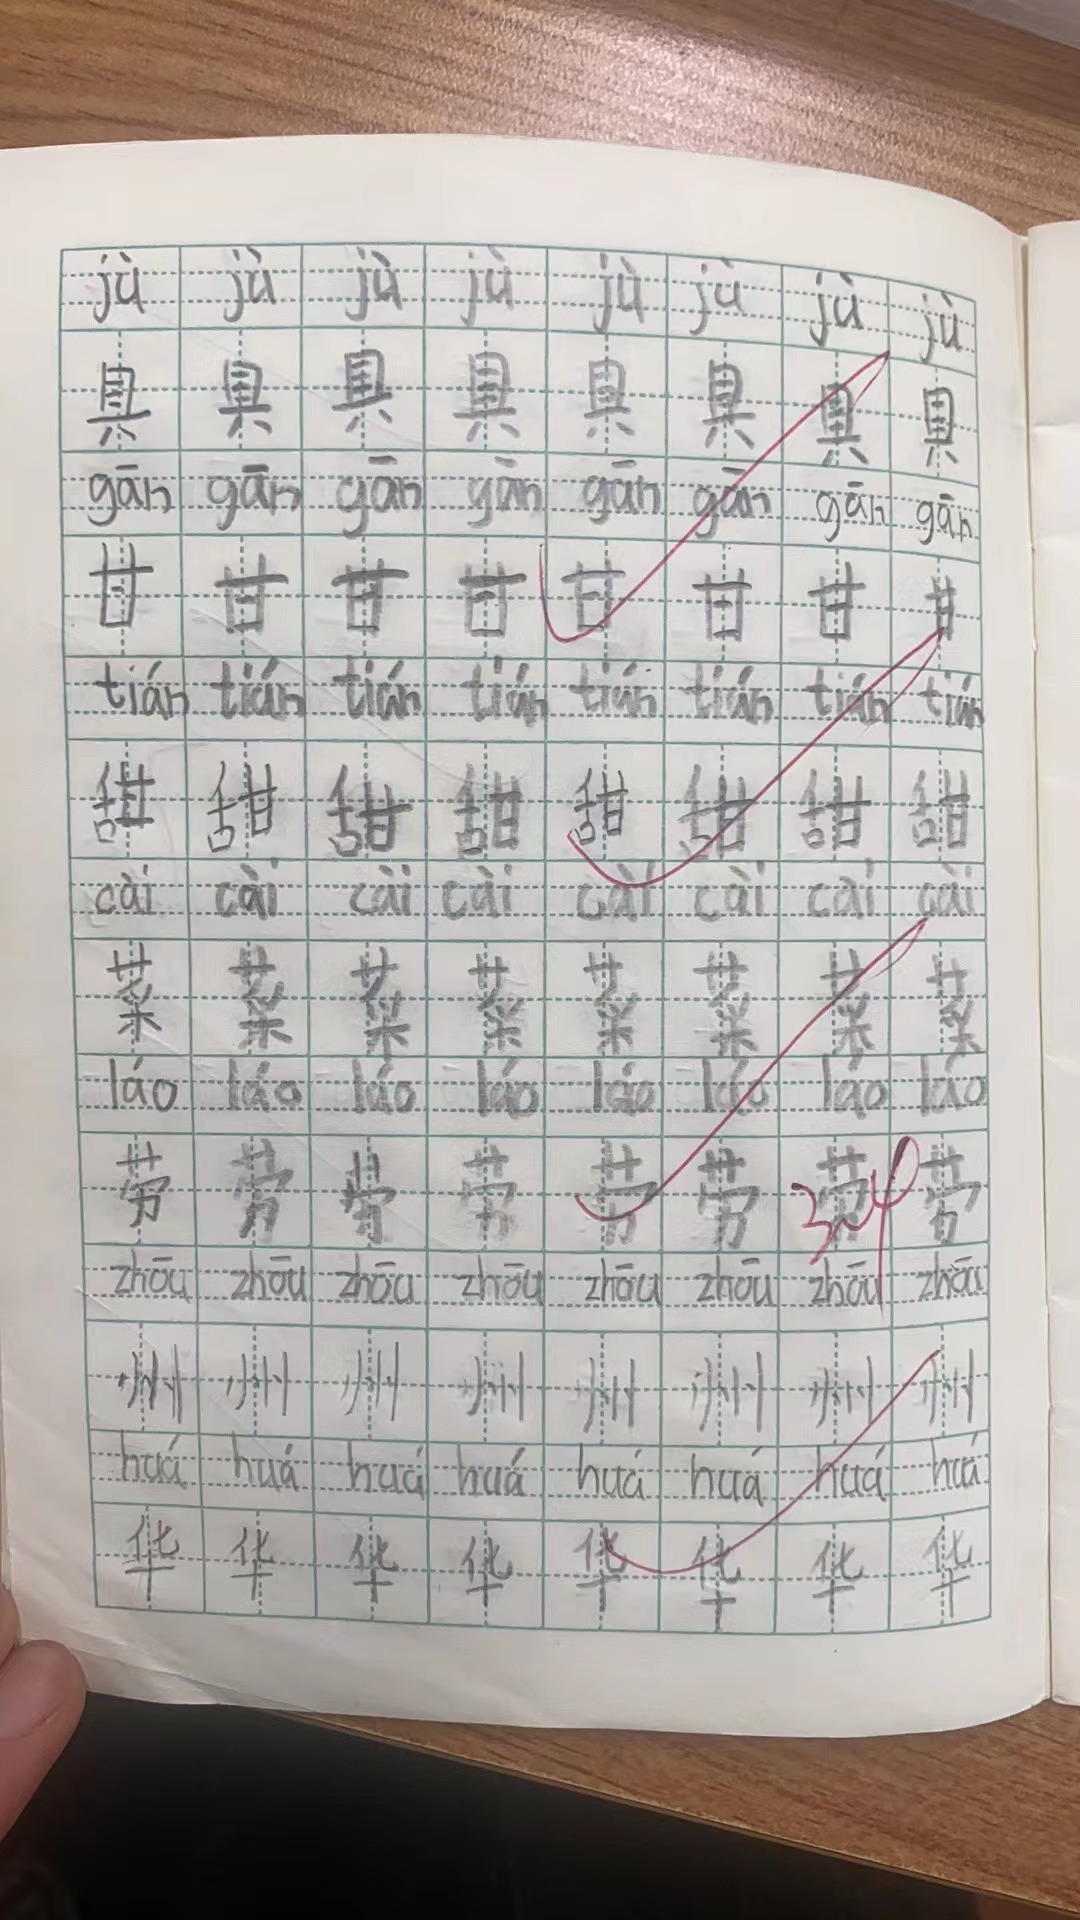 jù jù jù jù jù jù jù jù
具 具 具 具 具 具 具 具
gān gān gān gān gān gān gān gān
甘 甘 甘 甘 甘 甘 甘 甘
tián tián tián tián tián tián tián tián
甜 甜 甜 甜 甜 甜 甜 甜
cài cài cài cài cài cài cài cài
菜 菜 菜 菜 菜 菜 菜 菜
láo láo láo láo láo láo láo láo
劳 劳 劳 劳 劳 劳 劳 劳
zhōu zhōu zhōu zhōu zhōu zhōu zhōu zhōu
州 州 州 州 州 州 州 州
huá huá huá huá huá huá huá huá
华 华 华 华 华 华 华 华